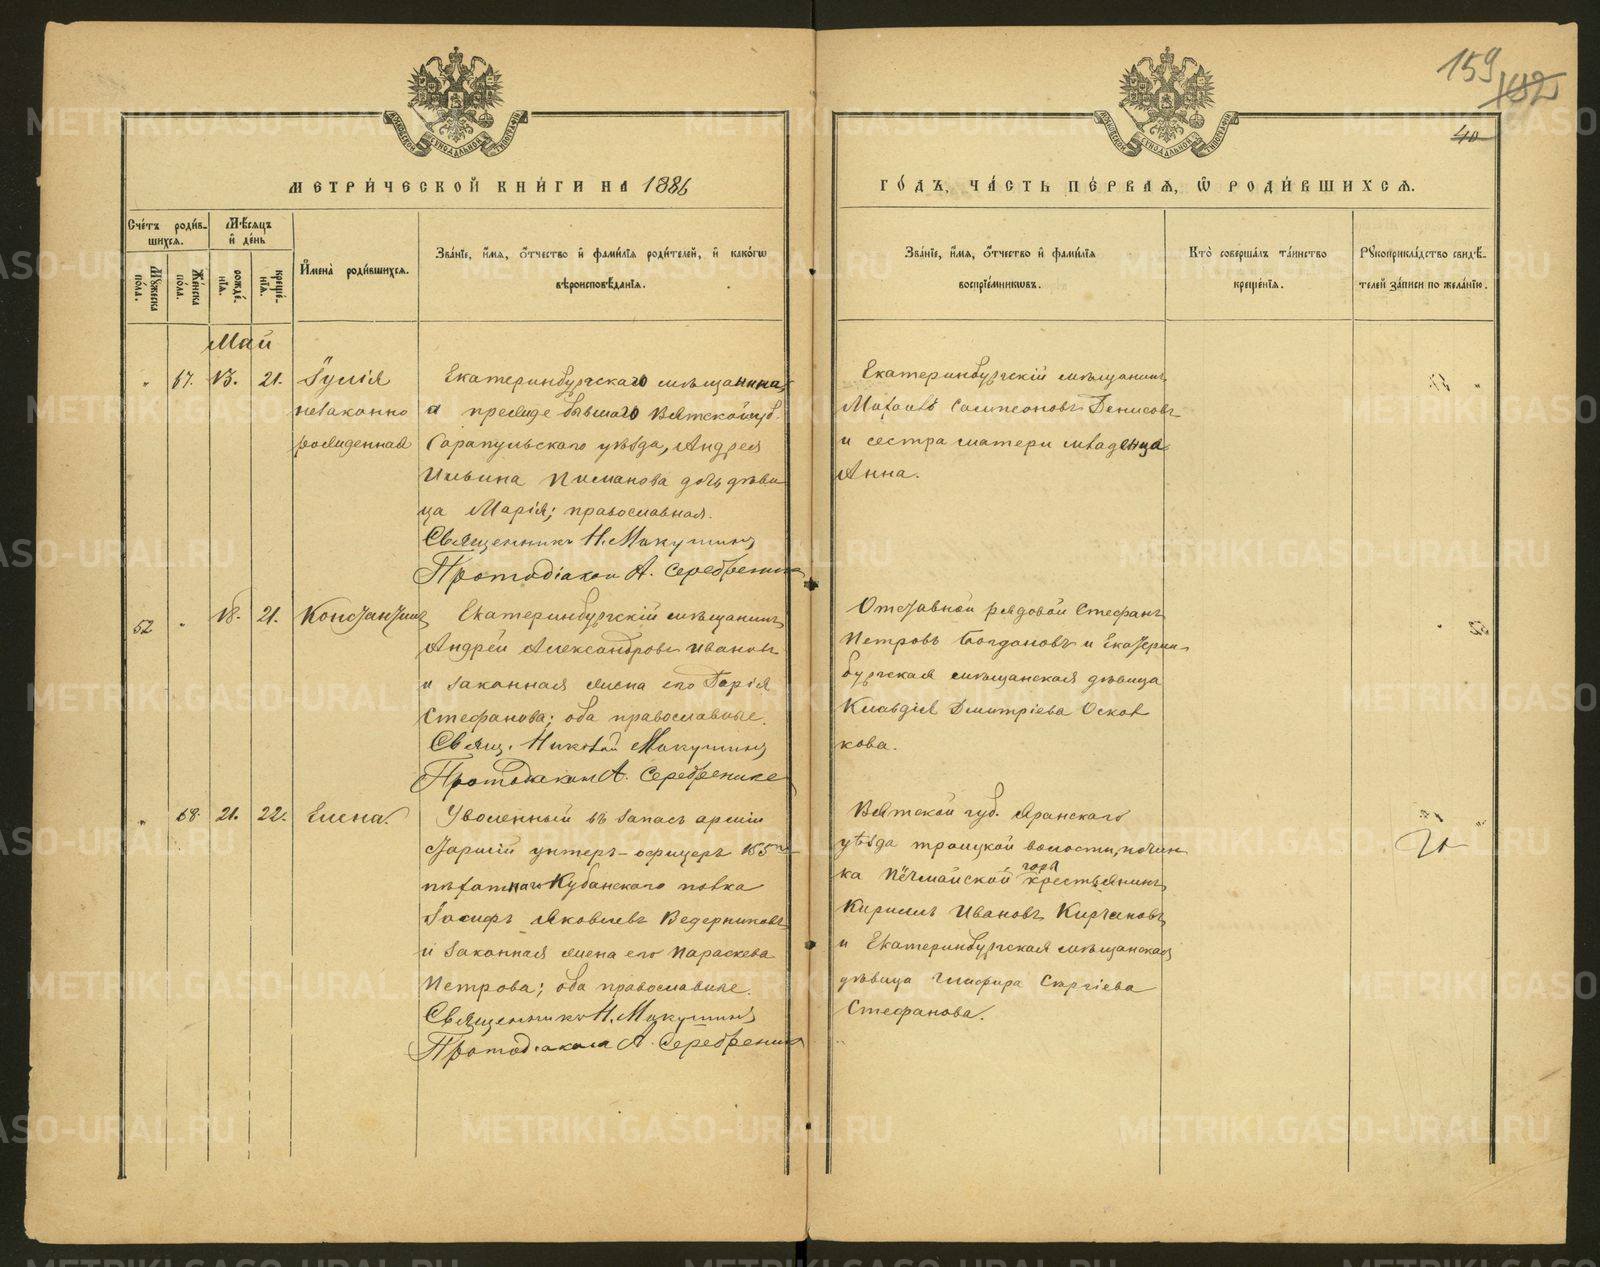 159
102
40
МОСКОВСКОЙ СѴНОДАЛЬНОЙ ТИПОГРАФІИ
МОСКОВСКОЙ СѴНОДАЛЬНОЙ ТИПОГРАФІИ
МЕТРИ́ЧЕСКОЙ КНИ́ГИ НА 1886
ГО́ДЪ, ЧА́СТЬ ПЕ́РВАЯ, Ѿ РОДИ́ВШИХСЯ.
Сче́тъ роди́в-
шихся.
Мѣ́сяцъ
и́ де́нь
Мꙋ́жеска
по́ла.
Же́нска
по́ла.
рожде́-
нїя.
креще́-
нїя.
И҆мена̀ роди́вшихся.
Зва́нїе, и҆́мя, ѻ҆́тчество и҆ фами́лїя роди́телей, и҆ како́гѡ
вѣроисповѣ́данїя.
Зва́нїе, и҆́мя, ѻ҆́тчество и҆ фами́лїя
воспрїе́мникѡвъ.
Кто̀ соверша́лъ та́инство
креще́нїя.
Рꙋкоприкла́дство свидѣ́-
телей за́писи по жела́нїю.
Май
" 67. 13. 21.
Іулія
незаконно
рожденная
Екатеринбургскаго мѣщанина,
а прежде бывшаго Вятской губ.
Сарапульскаго уѣзда, Андрея
Ильина Пиманова дочь дѣви
ца Марія; православная.
Священникъ Н. Макушинъ
Протодіакон А. Серебренник
Екатеринбургскій мѣщанинъ
Михаилъ Сампсоновъ Денисовъ
и сестра матери младенца
Анна.
52 " 18. 21.
Константинъ
Екатеринбургскій мѣщанинъ
Андрей Александровъ Ивановъ
и законная жена его Дарія
Стефанова; оба православные.
Свящ. Николай Макушинъ
Протодіакон А. Серебренник
Отставной рядовой Стефанъ
Петровъ Богдановъ и Екатерин
бургская мѣщанская дѣвица
Клавдія Дмитріева Оскол
кова.
" 68. 21. 22.
Елена.
Уволенный въ запасъ арміи
старшій унтеръ-офицеръ 155го
пѣхотнаго Кубанскаго полка
Іосифъ Яковлевъ Ведерниковъ
и законная жена его Параскева
Петрова; оба православные.
Священникъ Н. Макушинъ
Протодіакон А. Серебренник
Вятской губ. Яранскаго
уѣзда троицкой волости, почин
ка Пёчмайской горы крестьянинъ
Кириллъ Ивановъ Киргановъ
и Екатеринбургская мѣщанская
дѣвица Глафира Сергіева
Стефанова.
METRIKI.GASO-URAL.RU